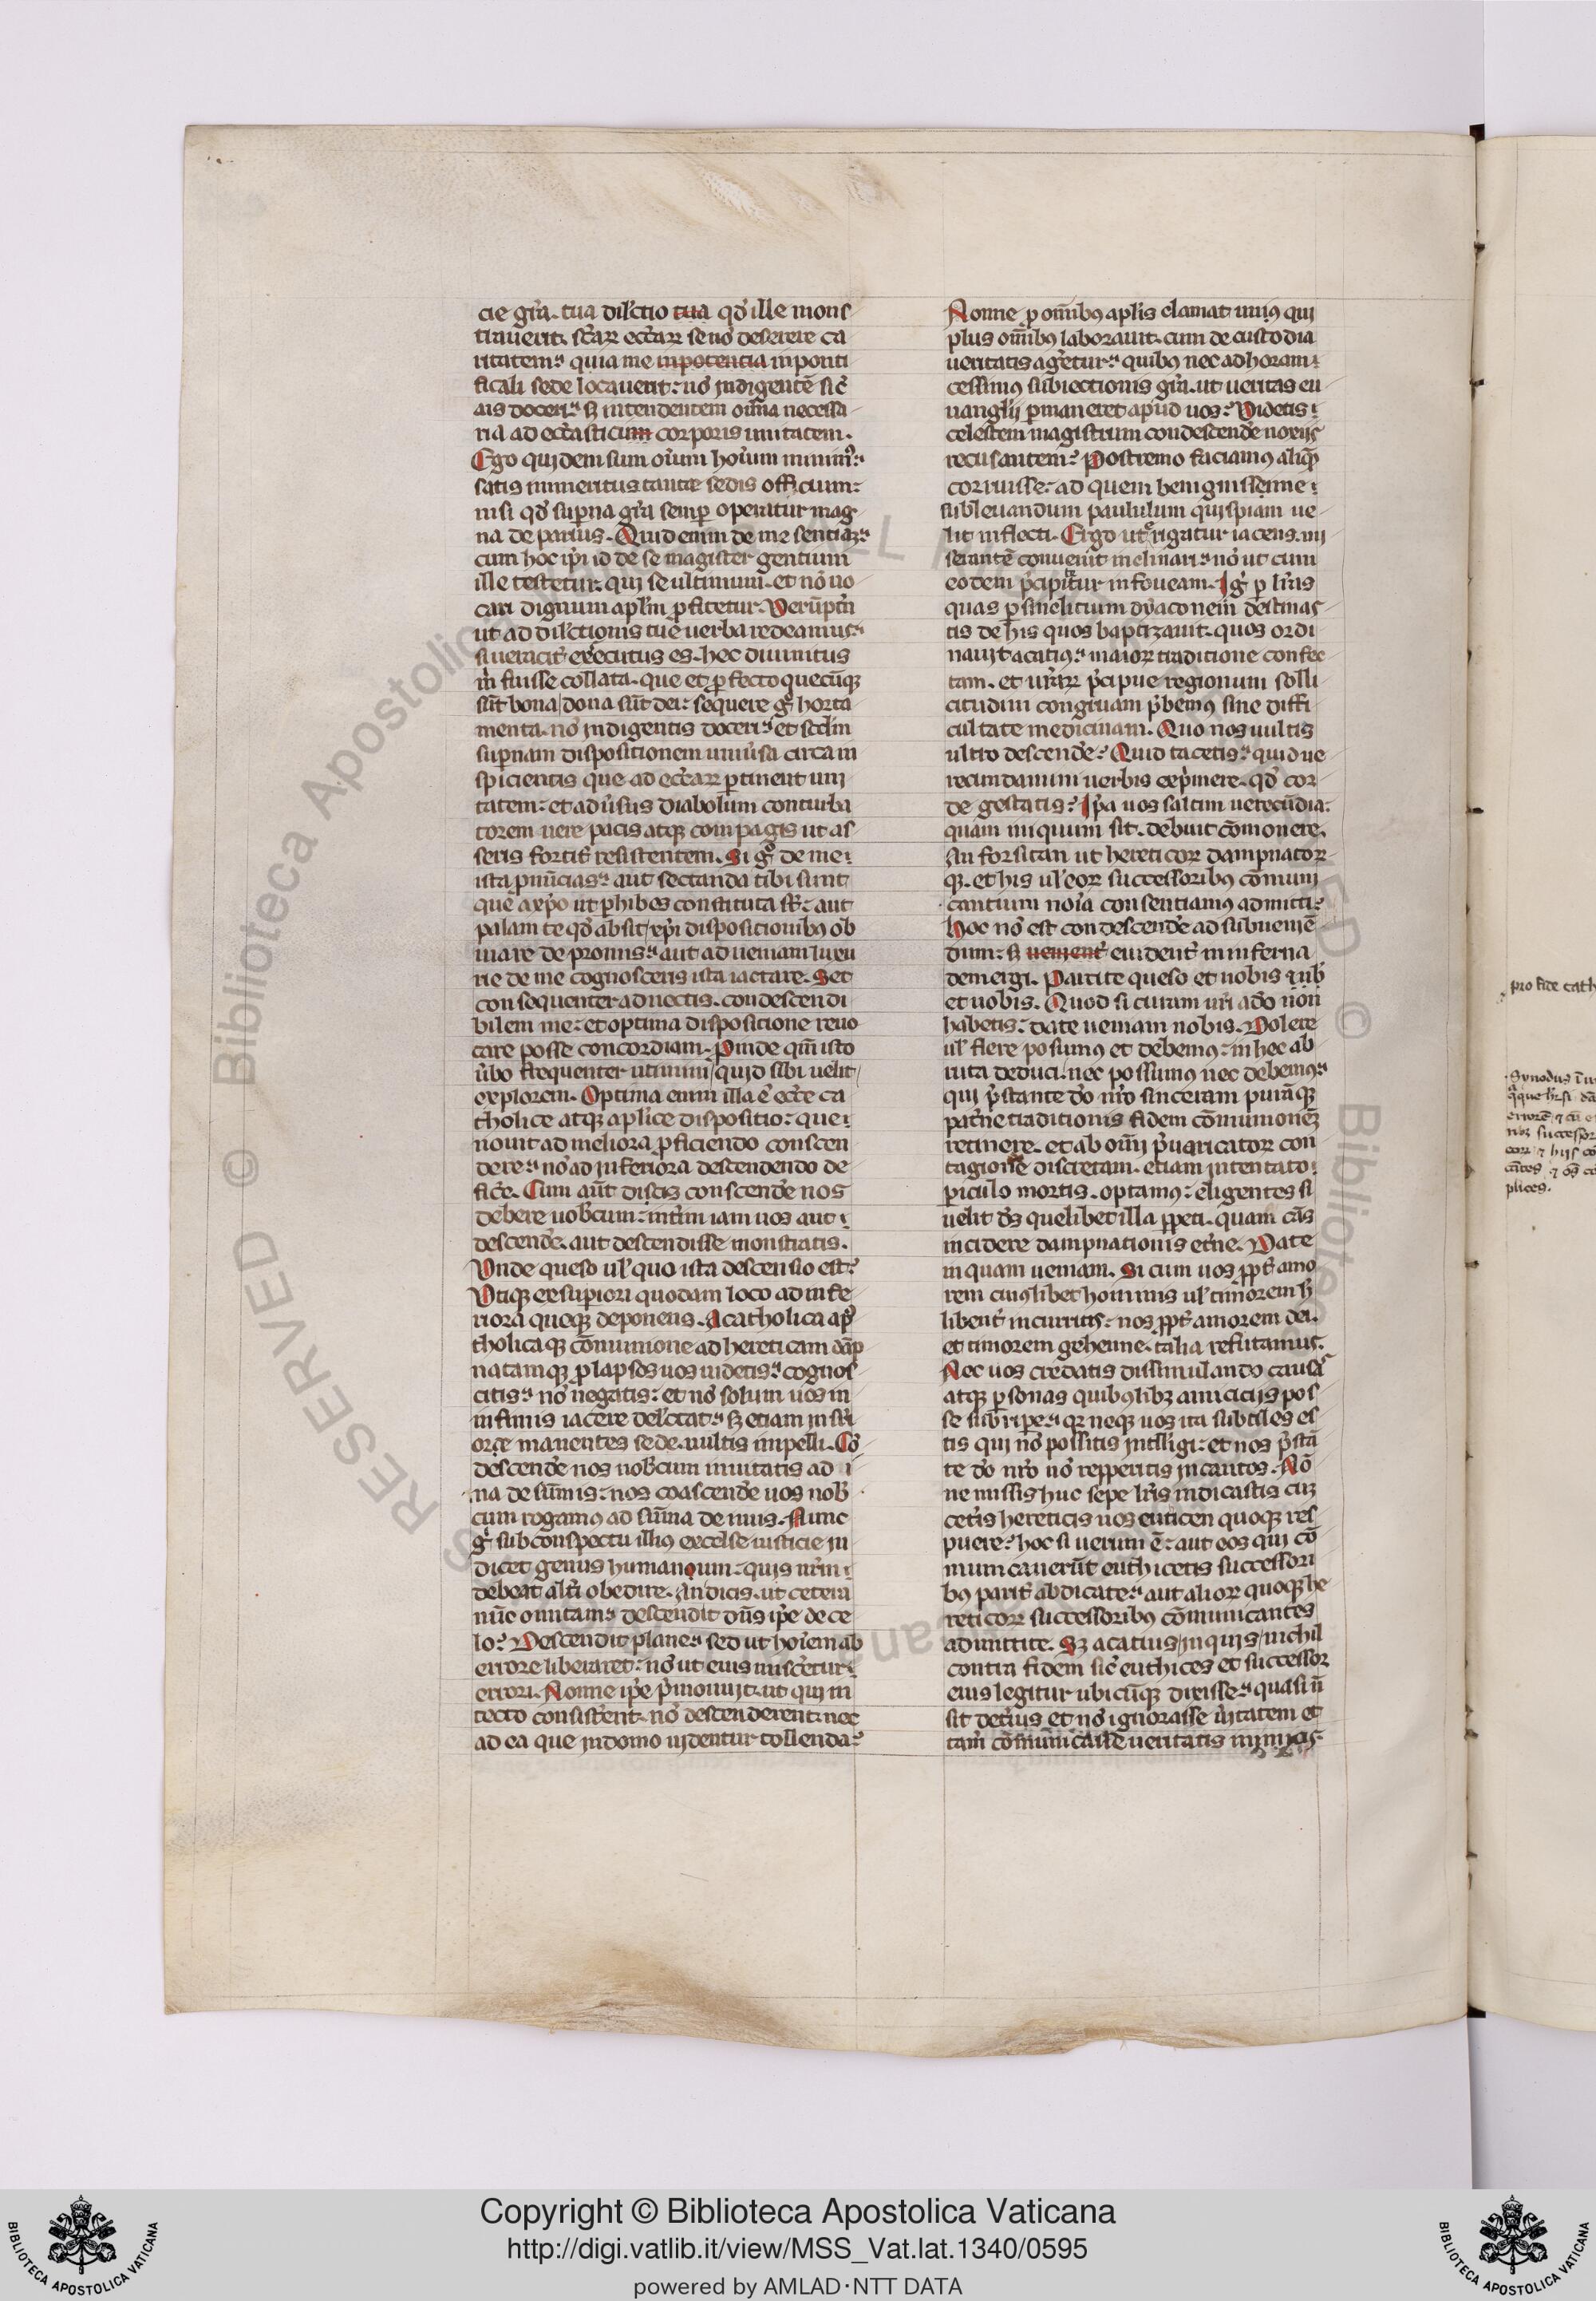 cie gr̄a. tua dil'ctio tua qd̄ ille mons
trauerit. sc̄ar̄ ecc̄ar̄ se nō deserere ca
ritatem: quia me inpotencia inponti
ficali sede locauerit: nō indigentē sic̄
ais doceri: sꝫ intendentem om̄ia necessa
ria ad ecc̄asticum corporis unitatem.
Ego quidem sum om̄ium hoīum minimꝰ:
satis inmeritus tante sedis officium:
nisi qd̄ supna gr̄a semp operatur mag
na de paruis. Quid enim de me sentiaꝫ:
cum hoc ip̄i id de se magister gentium
ille testetur. qui se ultimum. et nō uo
cari dignum apl'm ꝓfitetur. Verūptn̄
ut ad dil'ctionis tue uerba redeamus:
si ueracit̄ executus es. hec diuinitus
m̄ fuisse collata. que et ꝓfecto quecūqꝫ
sūt bona dona sūt dei: sequere gͦ horta
menta. nō indigentis doceri: et scd̄m
supnam dispositionem uniūsa circa in
spicientis que ad ecc̄ar̄ ꝑtinent uni
tatem: et adūsus diabolum conturba
torem uere pacis atqꝫ compagis ut as
seris fortit̄ resistentem. Si gͦ de me
ista pnūcias: aut sectanda tibi sunt
que a xp̄o ut ꝑhibes constituta sūt: aut
palam te qd̄ absit xp̄i dispositionibꝰ ob
uiare de promis: aut ad ueniam lueu
rie de me cognosceris ista iactare. Set
consequenter adnectis. condescendi
bilem me: et optima dispositione reuo
care posse concordiam. Proinde qm̄ isto
ūbo frequenter utimini quid sibi uelit
explorem. Optima enim illa ē ecc̄e ca
tholice atqꝫ aplice dispositio: que
nouit ad meliora ꝓficiendo conscen
dere: nō ad inferiora descendendo de
ficē. Cum aūt dicis conscendē nos
debere uobcum: intim iam uos aut
descendē. aut descendisse monstratis.
Unde queso ul' quo ista descensio est?
Utiqꝫ ex superiori quodam loco ad infe
riora queqꝫ deponens. A catholica ap̄
tholicaqꝫ cōmunione ad hereticam dāp
natamqꝫ ꝓlapsos uos uidetis: cognos
citis: nō negatis: et nō solum uos in
infimis iacere del'ctat: sꝫ etiam in su
ore manentes sede. uultis impelli. Cō
descendē nos uobcum inuitatis ad i
na de sūmis: nos coascendē uos nob
cum rogamꝰ ad sūma de imis. Nunc
gͦ sub conspectu illiꝰ excelse iusticie in
dicet genus humanum: quis nr̄m
debeat alt̄i obedire. An dicis. ut cetera
nūc omitam: descendit dn̄s ip̄e de ce
lo? Descendit plane: sed ut hoīem ab
errore liberaret: nō ut eius miscetur
errori. Nonne ip̄e p̄monuit. ut qui in
tecto consistent. nō descenderent. nec
ad ea que in domo uidentur tollenda?
Nonne p omībꝰ aplis clamat unꝰ qui
plus omībꝰ laborauit. cum de custodia
ueritatis agetur: quibꝰ nec ad horam
cessimꝰ subiectionis gr̄a. ut ueritas eu
uanglij ꝑmaneret apud uos? Videtis
celestem magistrum condescendē noxijs
recusantem? Postremo faciamꝰ aliqͥ
corruisse: ad quem benignissime
subleuandum paululum quispiam ue
lit inflecti. Ergo ut erigatur iacens. mi
serantē conuenit inclinari: nō ut cum
eodem p̄cipitur in foueam. Igͦ p lr̄as
quas p sinclitium dyaconem destinas
tis de his quos baptizauit. quos ordi
nauit acatiꝰ: maiorꝫ traditione confec
tam. et ur̄arꝫ p̄cipue regionum solli
citudini congruam p̄bemꝰ sine diffi
cultate medicinam. Quo nos uultis
ultro descendē? Quid tacetis: quid ue
recundamini uerbis exp̄mere. qd̄ cor
de gestatis? Ip̄a uos saltim uerecūdia:
quam iniquum sit. debuit cōmonere.
An forsitan ut hereticorꝫ dampnatorꝫ
qꝫ. et his ul' eorꝫ successoribꝰ cōmuni
cantium noīa consentiamꝰ admitti?
hoc nō est condescendē ad subueniē
dum: sꝫ uenient̄ euident̄ in inferna
demergi. Parcite queso et uobis & nob̄
et uobis. Quod si curam ur̄i a dō non
habetis: date ueniam nobis. Dolere
ul' flere possumꝰ et debemꝰ: in hec ab
ruta deduci. nec possumꝰ nec debemꝰ:
qui p̄stante dō nr̄o sinceram puraqꝫ
patne traditionis fidem cōmunionēꝫ
retinere. et ab omī p̄uaricatorꝫ con
tagione discretam. etiam intentato
piculo mortis. optamꝰ: eligentes si
uelit ds̄ quelibet illa ꝑpeti. quam cās
incidere dampnationis etne. Date
inquam ueniam. Si cum uos ꝓpt̄ amo
rem cuiꝰlibet hominis ul' timorem h̄
libent̄ incurritis: nos ꝓpt̄ amorem dei.
et timorem gehenne. talia refutamus.
Nec uos credatis dissimulando causā
atqꝫ ꝑsonas quibꝰlibꝫ amiciciis pos
se subripe: qꝛ neqꝫ uos ita subtil'es es
tis qui nō possitis intelligi: et nos p̄stā
te dō nr̄o nō repperitis incautos. Nō
ne missis huc sepe lr̄is indicastis cū
cetis hereticis uos euticen quoqꝫ res
puere? hoc si uerum ē: aut eos qui cō
municauerūt euthicetis successori
bꝰ parit̄ abdicate: aut aliorꝫ quoqꝫ he
reticorꝫ successoribꝰ cōmunicantes
admittite. Sꝫ acatius inquis nichil
contra fidem sic̄ euthices et successorꝫ
eius legitur ubicūqꝫ dixisse: quasi n̄
sit detius et nō ignorasse ūitatem et
tam̄ cōmunicasse ueritatis inimicis.
pro fide cath
Synodus
plices.
Copyright © Biblioteca Apostolica Vaticana
http://digi.vatlib.it/view/MSS_Vat.lat.1340/0595
powered by AMLAD·NTT DATA
BIBLIOTECA APOSTOLICA VATICANA
BIBLIOTECA APOSTOLICA VATICANA